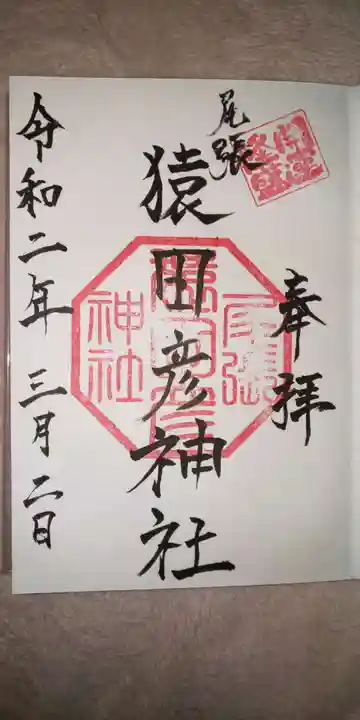 奉拝
尾張
猿田彦神社
令和二年 三月二日
尾張
猿田彦
神社